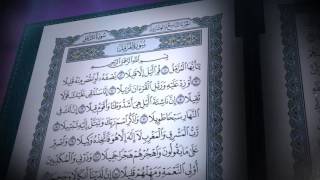 سورة المزمل
سُورَةُ المُزَّمِّلِ
بِسْمِ ٱللَّهِ ٱلرَّحْمَٰنِ ٱلرَّحِيمِ
يَٰٓأَيُّهَا ٱلْمُزَّمِّلُ ١ قُمِ ٱلَّيْلَ إِلَّا قَلِيلًا ٢ نِّصْفَهُۥٓ أَوِ ٱنقُصْ مِنْهُ قَلِيلًا
٣ أَوْ زِدْ عَلَيْهِ وَرَتِّلِ ٱلْقُرْءَانَ تَرْتِيلًا ٤ إِنَّا سَنُلْقِى عَلَيْكَ قَوْلًا
ثَقِيلًا ٥ إِنَّ نَاشِئَةَ ٱلَّيْلِ هِىَ أَشَدُّ وَطْـًٔا وَأَقْوَمُ قِيلًا ٦ إِنَّ لَكَ فِى
ٱلنَّهَارِ سَبْحًا طَوِيلًا ٧ وَٱذْكُرِ ٱسْمَ رَبِّكَ وَتَبَتَّلْ إِلَيْهِ تَبْتِيلًا ٨
رَّبُّ ٱلْمَشْرِقِ وَٱلْمَغْرِبِ لَآ إِلَٰهَ إِلَّا هُوَ فَٱتَّخِذْهُ وَكِيلًا ٩ وَٱصْبِرْ
عَلَىٰ مَا يَقُولُونَ وَٱهْجُرْهُمْ هَجْرًا جَمِيلًا ١٠ وَذَرْنِى وَٱلْمُكَذِّبِينَ
أُو۟لِى ٱلنَّعْمَةِ وَمَهِّلْهُمْ قَلِيلًا